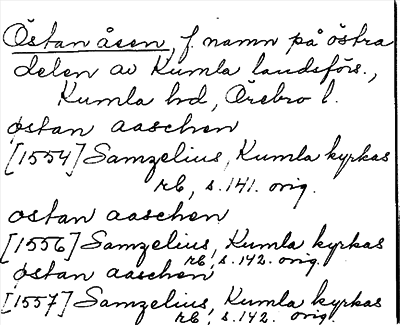 Östan åsen, f. namn på östra
delen av Kumla landsförs.,
Kumla hd, Örebro l.
østan aaschen
[1554] Samzelius, Kumla kyrkas
rb, s. 141. orig.
østan aaschen
[1556] Samzelius, Kumla kyrkas
rb, s. 142. orig.
østan aaschen
[1557] Samzelius, Kumla kyrkas
rb, s. 142. orig.